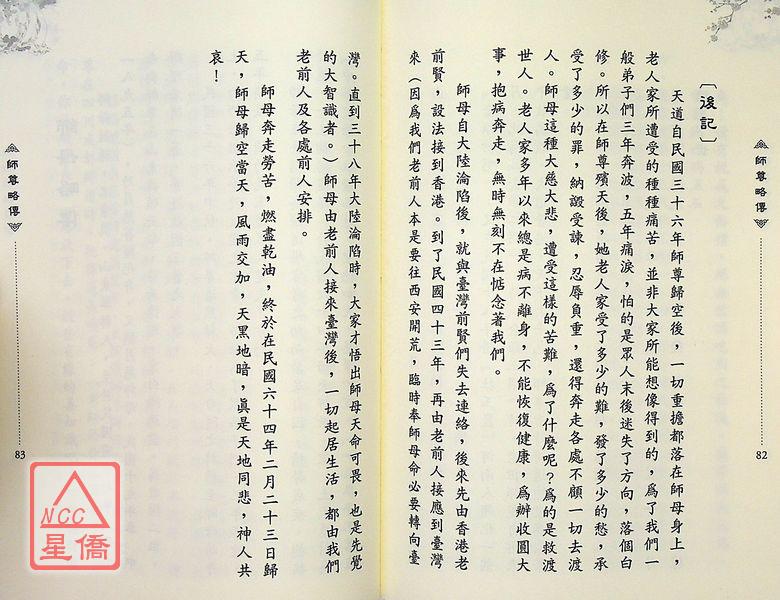 〔後記〕
天道自民國三十六年師尊歸空後，一切重擔都落在師母身上，
老人家所遭受的種種痛苦，並非大家所能想像得到的，爲了我們一
般弟子們三年奔波，五年痛淚，怕的是眾人末後迷失了方向，落個白
修。所以在師尊殯天後，她老人家受了多少的難，發了多少的愁，承
受了多少的罪，納謗受諫，忍辱負重，還得奔走各處不顧一切去渡
人。師母這種大慈大悲，遭受這樣的苦難，爲了什麼呢？爲的是救渡
世人。老人家多年以來總是病不離身，不能恢復健康，爲辦收圓大
事，抱病奔走，無時無刻不在惦念著我們。
師母自大陸淪陷後，就與臺灣前賢們失去連絡，後來先由香港老
前賢，設法接到香港。到了民國四十三年，再由老前人接應到臺灣
來（因爲我們老前人本是要往西安開荒，臨時奉師母命必要轉向臺
師尊略傳
82
灣。直到三十八年大陸淪陷時，大家才悟出師母天命可畏，也是先覺
的大智識者。）師母由老前人接來臺灣後，一切起居生活，都由我們
老前人及各處前人安排。
師母奔走勞苦，燃盡乾油，終於在民國六十四年二月二十三日歸
天，師母歸空當天，風雨交加，天黑地暗，眞是天地同悲，神人共
哀！
師尊略傳
83
NCC
星僑